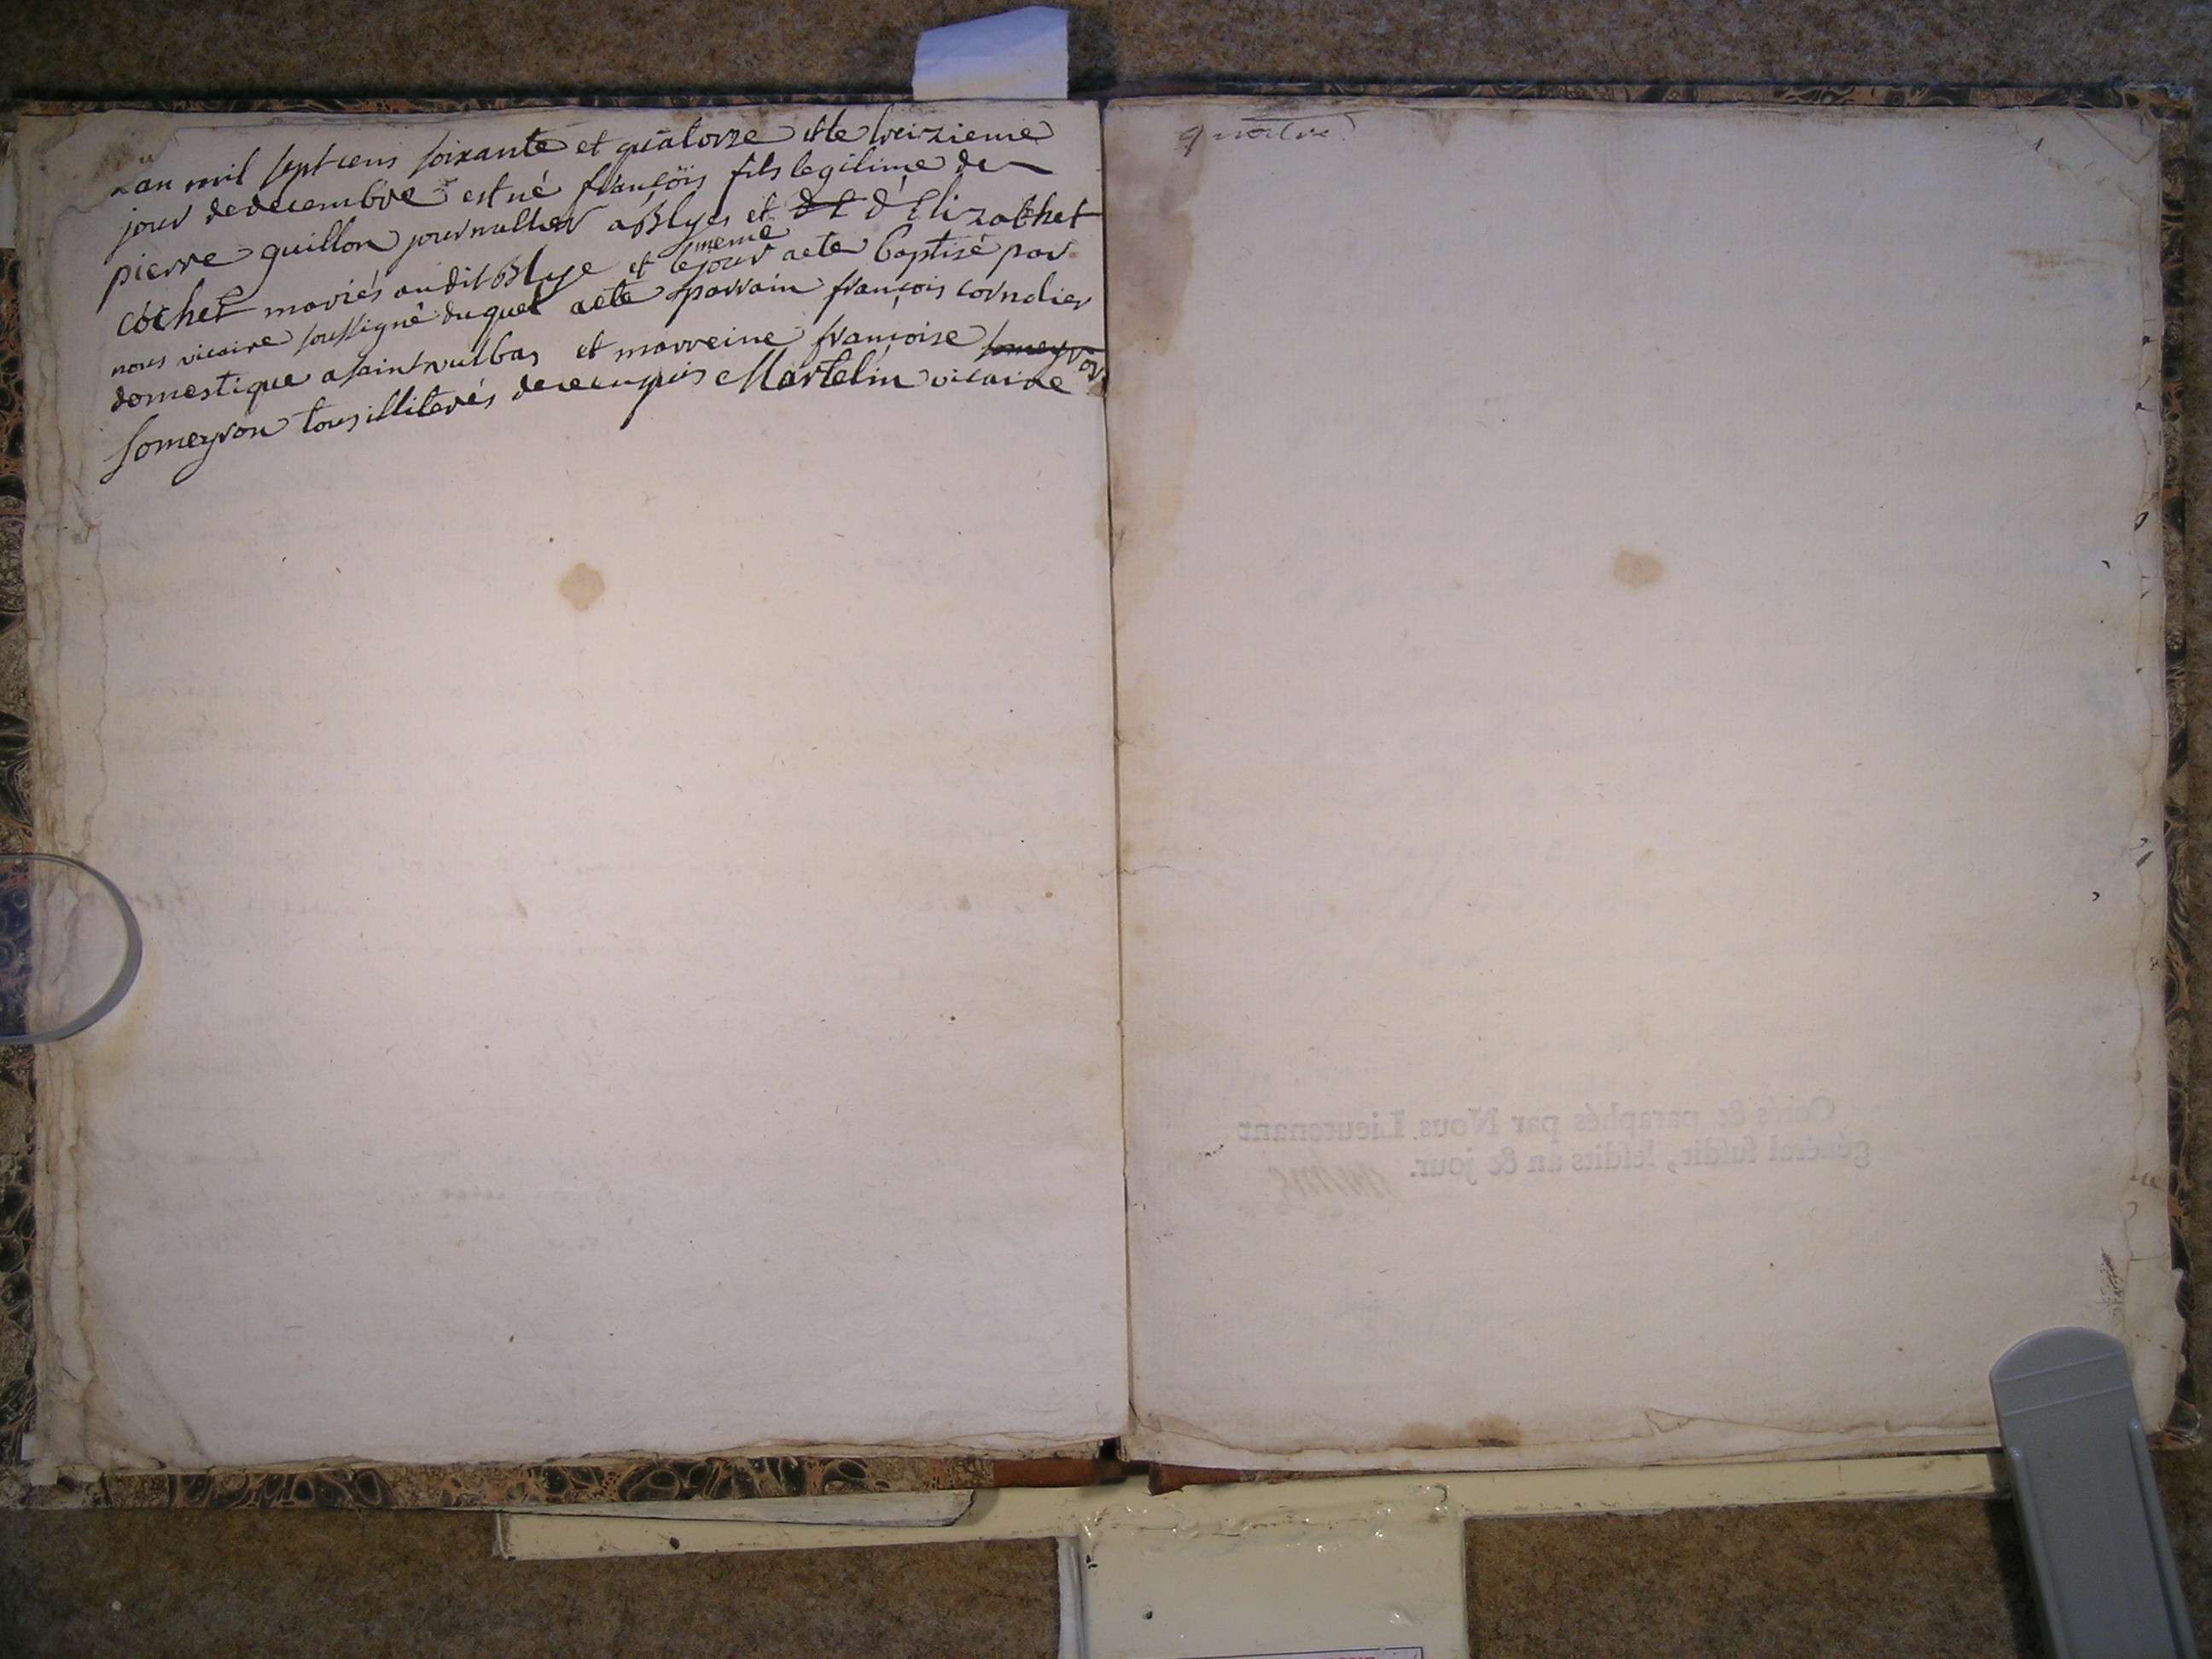 Lan mil sept cens soixante et quatorze et le treizieme
jour de decembre est né françois fils legitime de
pierre guillon journallier a Blyes et d'Elizabhet
cochet mariés au dit Blye et le meme jour a ete baptisé par
nous vicaire soussigné du quel a ete parrain françois cornalier
domestique a saint vulbas et marreine françoise someyron
someyron tous illiterés de ce enquis Martelin vicaire
quatre
Cotés & paraphés par Nous Lieutenant
général susdit, lesdits an & jour.